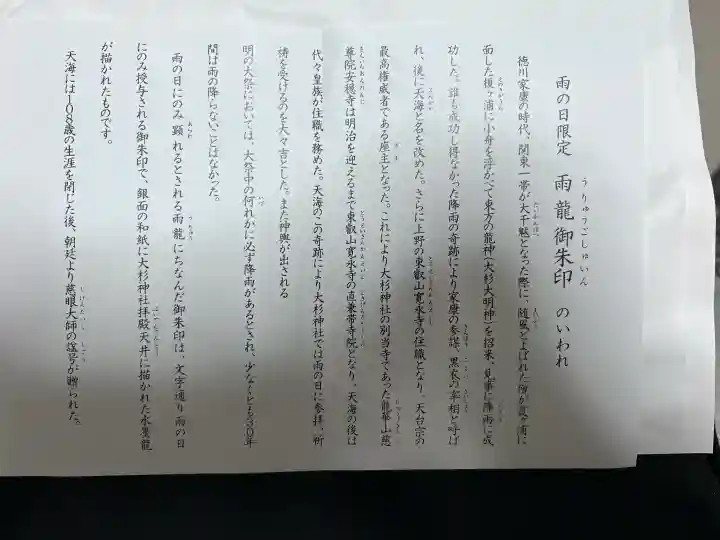 雨の日限定 雨龍御朱印 のいわれ
うりゅうごしゅいん
徳川家康の時代、関東一帯が大干魃となった際に、随風とよばれた僧が
面した榎ヶ浦に小舟を浮かべて東方の龍神(大杉大明神)を招来、見事に降雨に成
功した。誰も成功し得なかった降雨の奇跡により家康の参謀、黒衣の宰相と呼ば
れ、後に天海と名を改めた。さらに上野の東叡山寛永寺の住職となり、天台宗の
最高権威者である座主となった。これにより大杉神社の別当寺であった龍華山慈
尊院安穏寺は明治を迎えるまで東叡山寛永寺の直兼帯寺院となり、天海の後は
代々皇族が住職を務めた。天海のこの奇跡により大杉神社では雨の日に参拝、祈
祷を受けるのを大々吉とした。また神輿が出される
明の大祭においては、大祭中の何れかに必ず降雨があるとされ、少なくとも30年
間は雨の降らないことはなかった。
雨の日にのみ顕れるとされる雨龍にちなんだ御朱印は、文字通り雨の日
にのみ授与される御朱印で、銀面の和紙に大杉神社拝殿天井に描かれた水墨龍
が描かれたものです。
天海には108歳の生涯を閉じた後、朝廷より慈眼大師の諡号が贈られた。